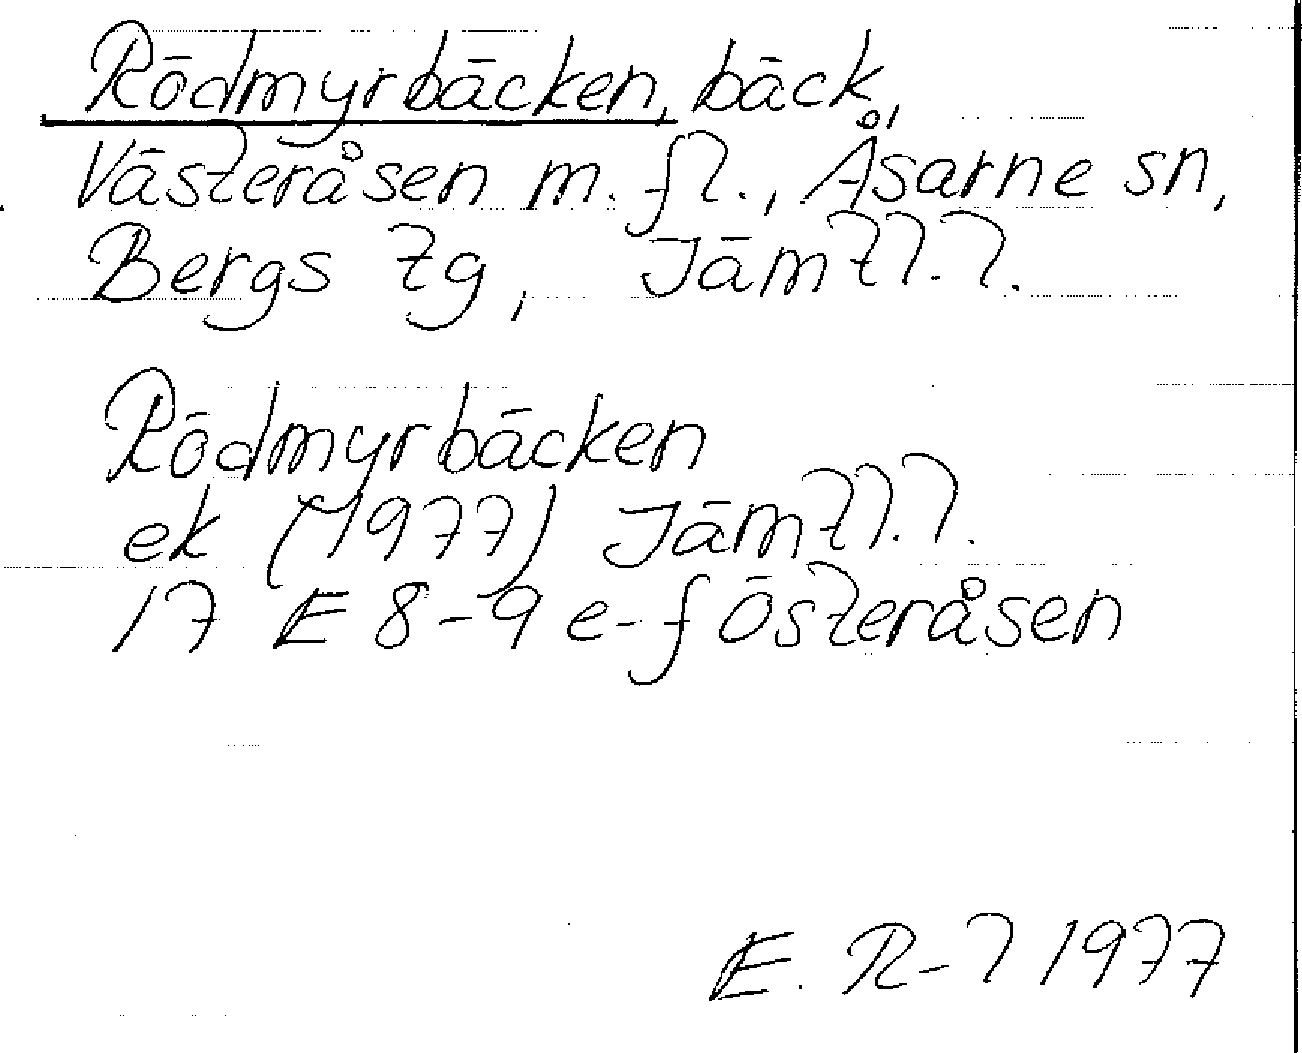 Rödmyrbäcken, bäck,
Västeråsen m. fl., Åsarne sn,
Bergs tg, Jämtl. l.
Rödmyrbäcken
ek (1977) Jämtl. l.
17 E 8-9 e-f Österåsen
E. R-l 1977